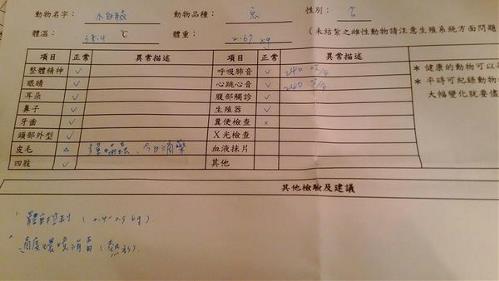 動物名字： 動物品種：兔 性別：
體溫：38.4 ℃ 體重：2.67 kg （未結紮之雌性動物請注意生殖系統方面問題
項目 正常 異常描述 項目 正常 異常描述
整體精神 ✓ 呼吸肺音 ✓ ＊ 健康的動物可以
眼睛 ✓ 心跳心音 ✓ ＊ 平時可紀錄動物
耳朵 ✓ 腹部觸診 ✓ 大幅變化就要儘
鼻子 ✓ 生殖器 ✓
牙齒 ✓ 糞便檢查 ×
頭部外型 ✓ X光檢查
皮毛 △ 今日滴藥 血液抹片
四肢 ✓ 其他
其他檢驗及建議
體重控制
適度環境消毒